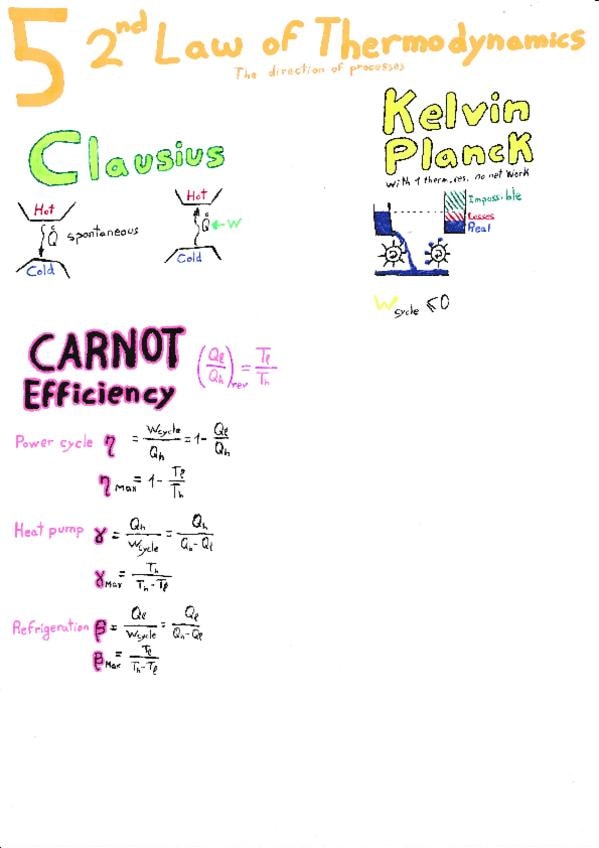 5 2nd Law of Thermodynamics
The direction of processes
Clausius
Hot
Q̇ spontaneous
Cold
Hot
Q̇ ← W
Cold
Kelvin
Planck
with 1 therm. res. no net work
Impossible
Losses
Real
W cycle ≤ 0
CARNOT
Efficiency
(Ql/Qh)rev = Tl/Th
Power cycle η = Wcycle/Qh = 1 - Ql/Qh
ηMax = 1 - Tl/Th
Heat pump γ = Qh/Wcycle = Qh/(Qh - Ql)
γMax = Th/(Th - Tl)
Refrigeration β = Ql/Wcycle = Ql/(Qh - Ql)
βMax = Tl/(Th - Tl)